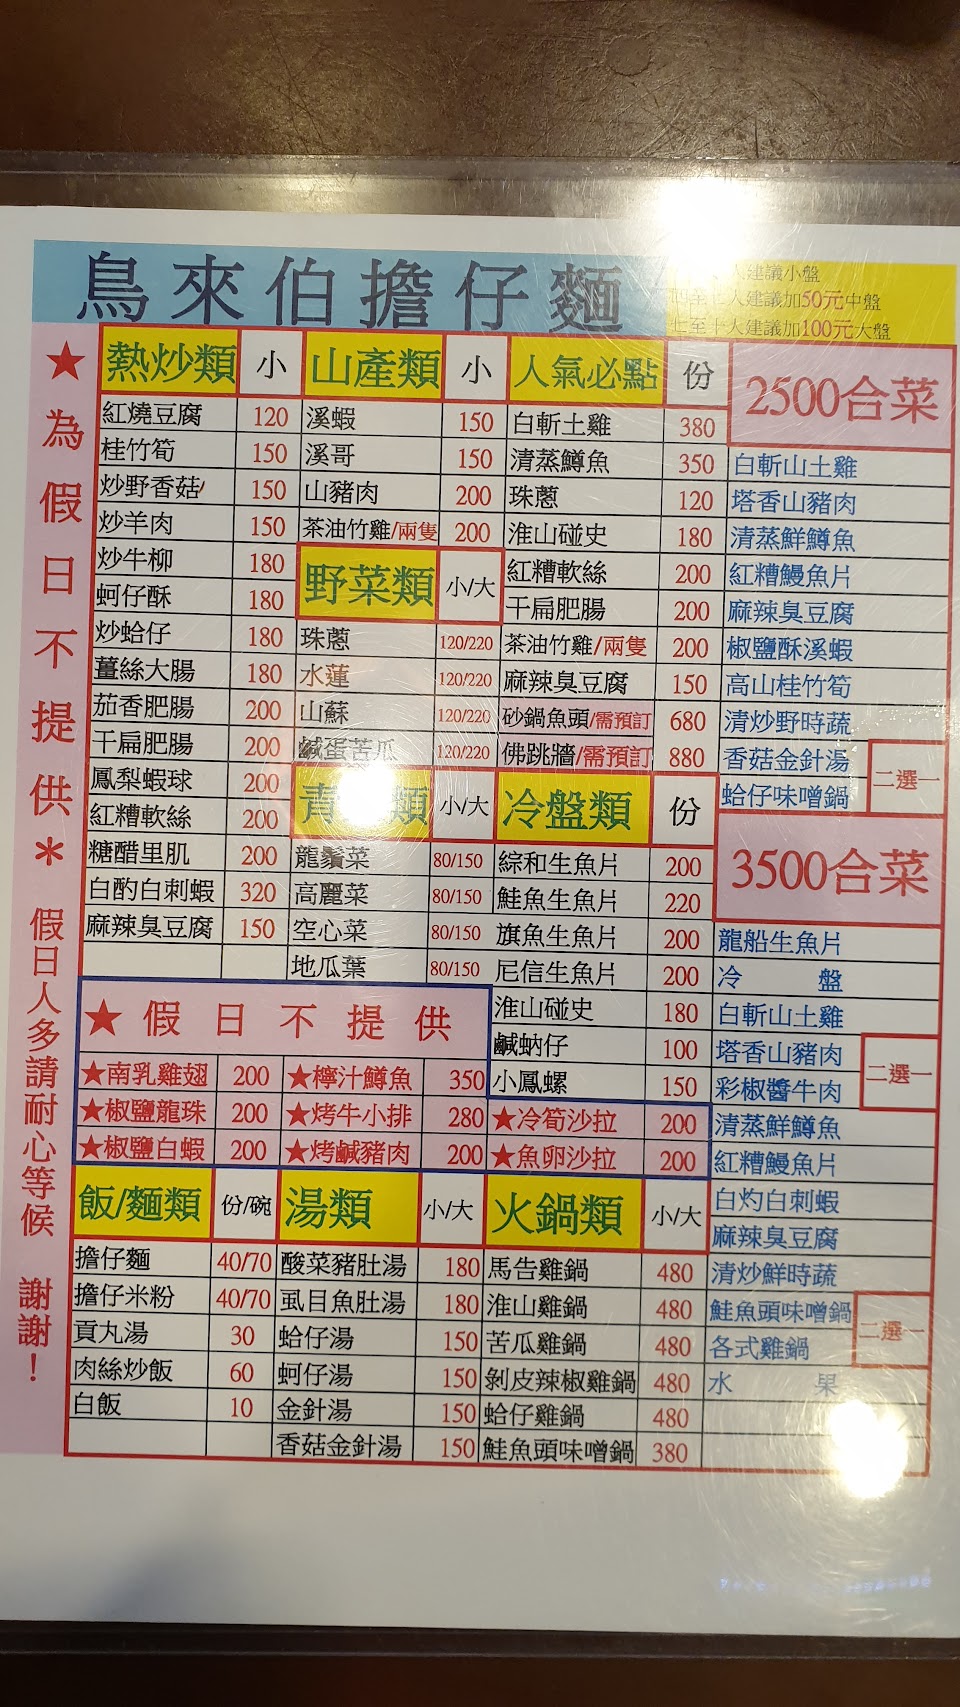 烏來伯擔仔麵
人建議小盤
四至七人建議加50元中盤
七至十人建議加100元大盤
★為假日不提供＊ 假日人多請耐心等候 謝謝！
熱炒類 小
紅燒豆腐 120
桂竹筍 150
炒野香菇 150
炒羊肉 150
炒牛柳 180
蚵仔酥 180
炒蛤仔 180
薑絲大腸 180
茄香肥腸 200
干扁肥腸 200
鳳梨蝦球 200
紅糟軟絲 200
糖醋里肌 200
白酌白刺蝦 320
麻辣臭豆腐 150
山產類 小
溪蝦 150
溪哥 150
山豬肉 200
茶油竹雞/兩隻 200
野菜類 小/大
珠蔥 120/220
水蓮 120/220
山蘇 120/220
鹹蛋苦瓜 120/220
青 類 小/大
龍鬚菜 80/150
高麗菜 80/150
空心菜 80/150
地瓜葉 80/150
人氣必點 份
白斬土雞 380
清蒸鱒魚 350
珠蔥 120
淮山碰史 180
紅糟軟絲 200
干扁肥腸 200
茶油竹雞/兩隻 200
麻辣臭豆腐 150
砂鍋魚頭/需預訂 680
佛跳牆/需預訂 880
冷盤類 份
綜和生魚片 200
鮭魚生魚片 220
旗魚生魚片 200
尼信生魚片 200
淮山碰史 180
鹹蚋仔 100
小鳳螺 150
★假日不提供
★南乳雞翅 200 ★檸汁鱒魚 350
★椒鹽龍珠 200 ★烤牛小排 280 ★冷筍沙拉 200
★椒鹽白蝦 200 ★烤鹹豬肉 200 ★魚卵沙拉 200
飯/麵類 份/碗
擔仔麵 40/70
擔仔米粉 40/70
貢丸湯 30
肉絲炒飯 60
白飯 10
湯類 小/大
酸菜豬肚湯 180
虱目魚肚湯 180
蛤仔湯 150
蚵仔湯 150
金針湯 150
香菇金針湯 150
火鍋類 小/大
馬告雞鍋 480
淮山雞鍋 480
苦瓜雞鍋 480
剝皮辣椒雞鍋 480
蛤仔雞鍋 480
鮭魚頭味噌鍋 380
2500合菜
白斬山土雞
塔香山豬肉
清蒸鮮鱒魚
紅糟鰻魚片
麻辣臭豆腐
椒鹽酥溪蝦
高山桂竹筍
清炒野時蔬
香菇金針湯
蛤仔味噌鍋
二選一
3500合菜
龍船生魚片
冷 盤
白斬山土雞
塔香山豬肉
彩椒醬牛肉
二選一
清蒸鮮鱒魚
紅糟鰻魚片
白灼白刺蝦
麻辣臭豆腐
清炒鮮時蔬
鮭魚頭味噌鍋
各式雞鍋
二選一
水 果